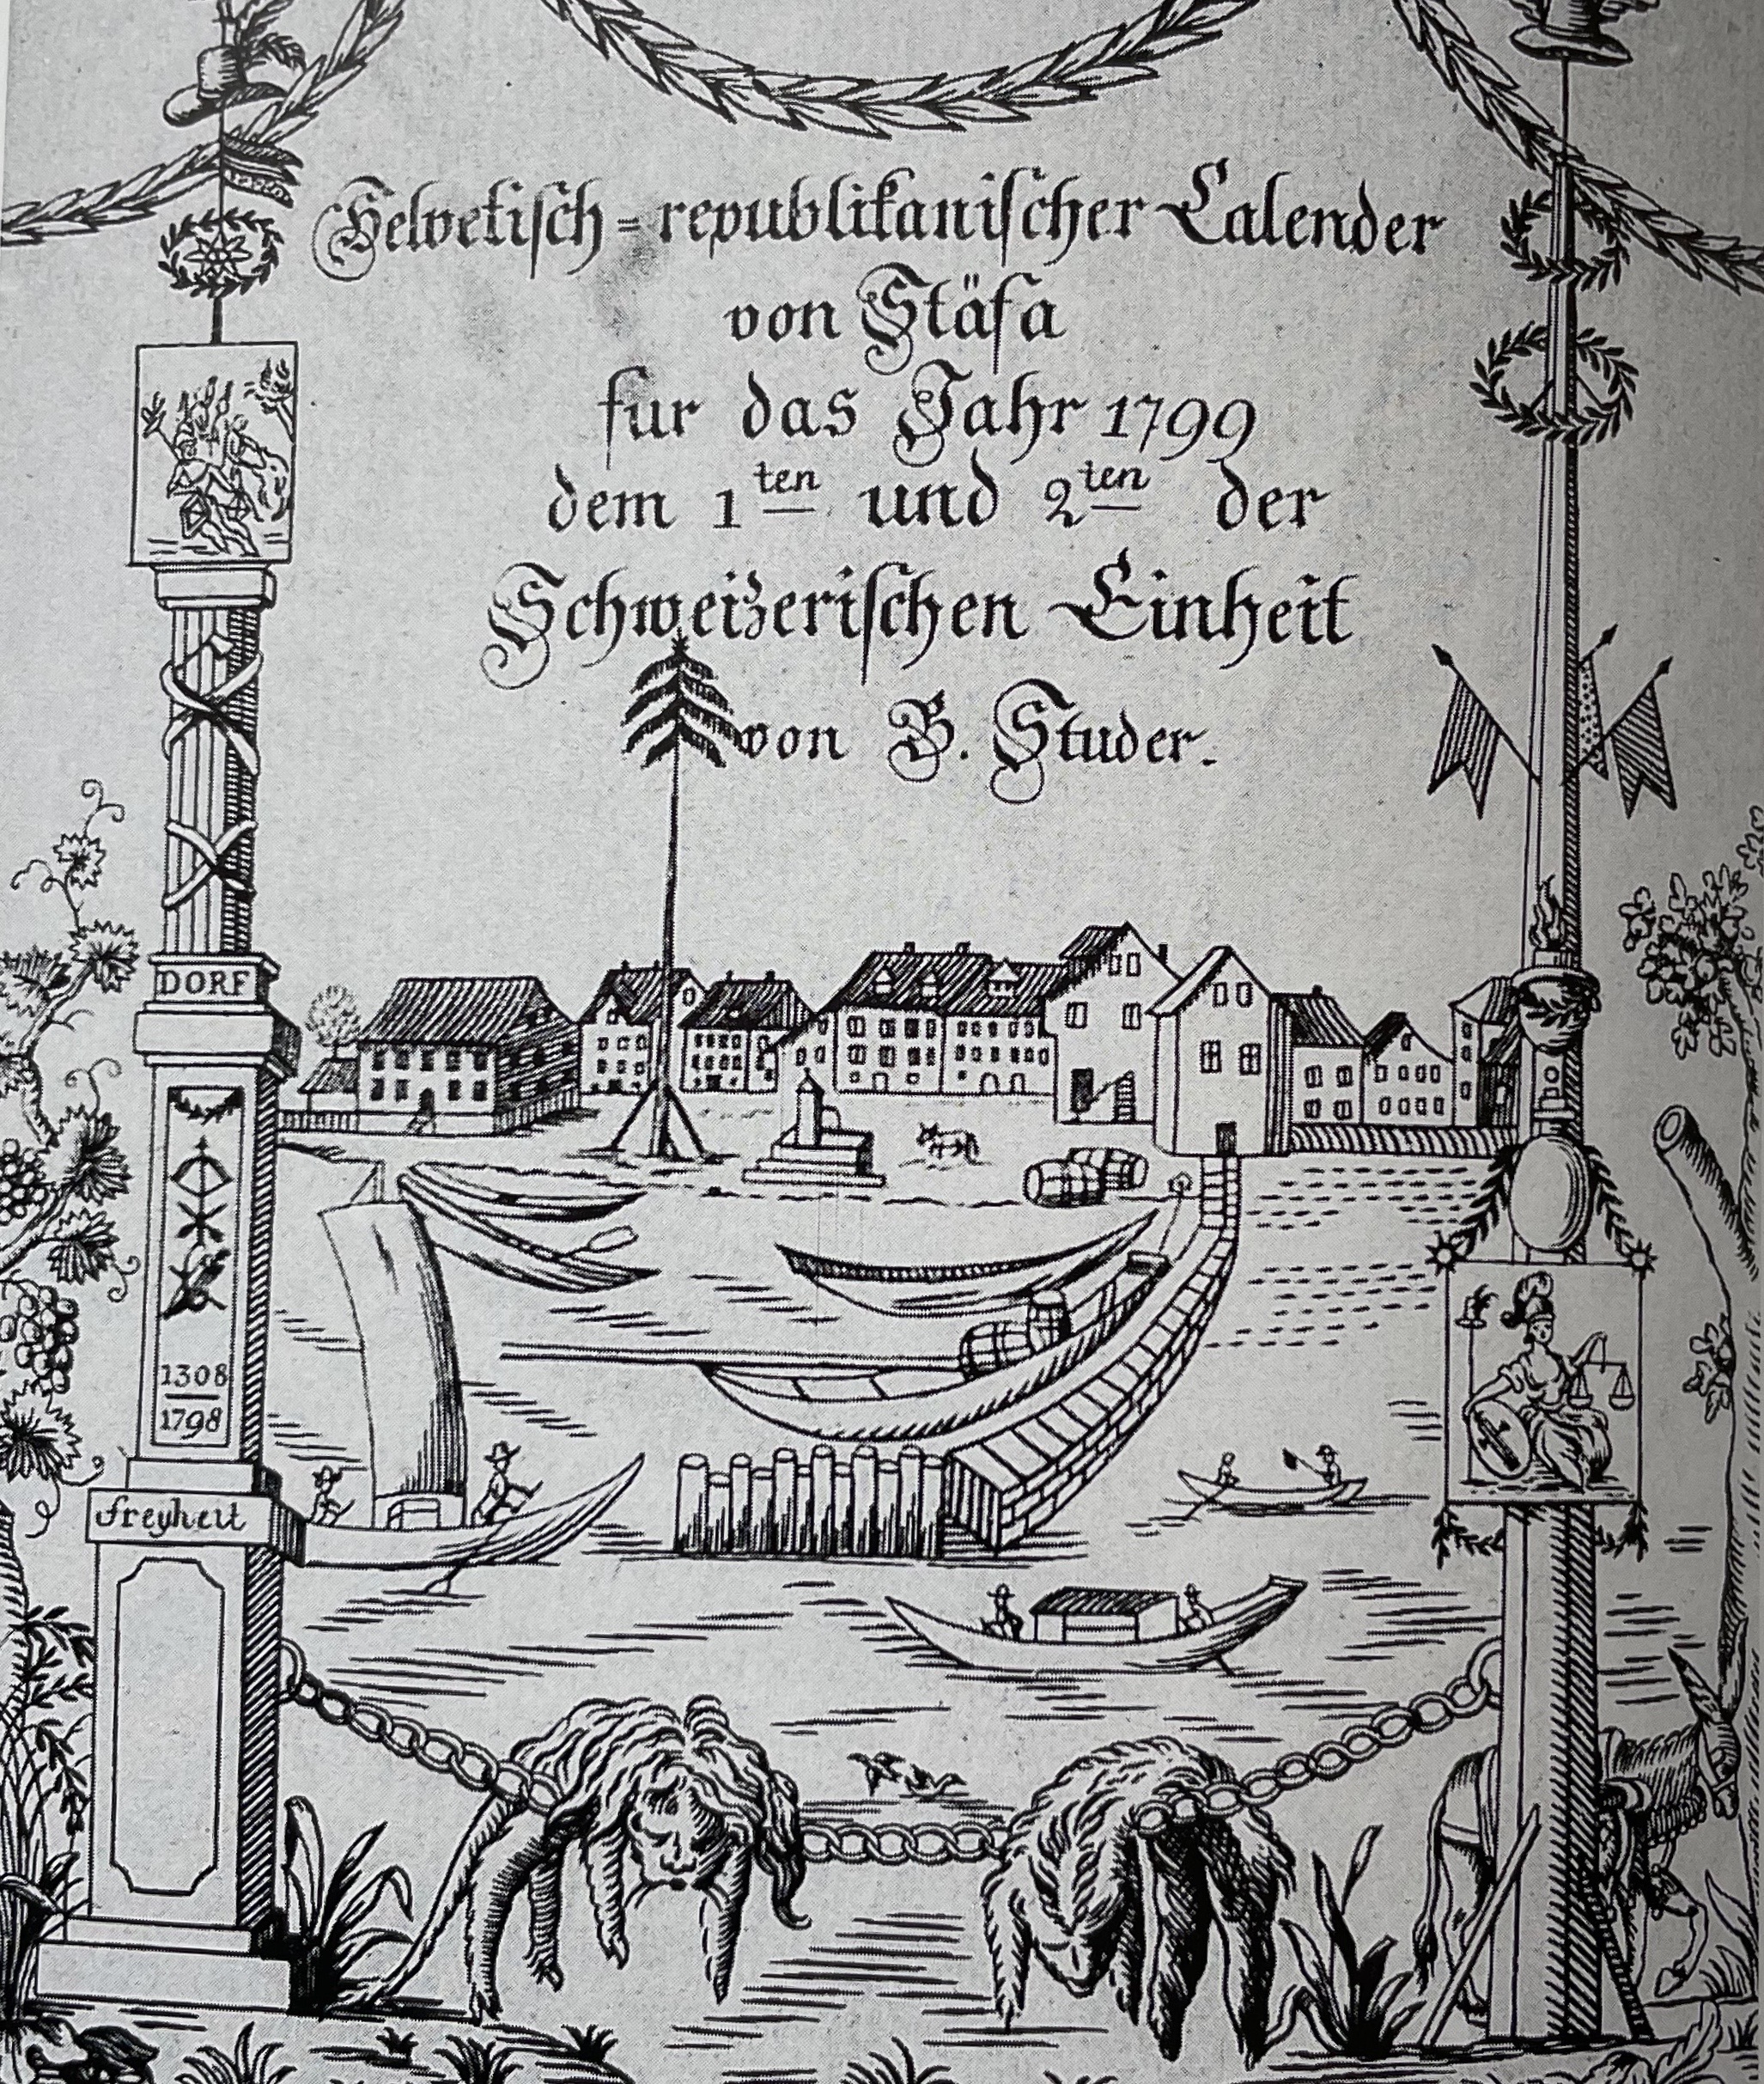 Helvetisch=republikanischer Calender
von Stäfa
fur das Jahr 1799
dem 1ten und 2ten der
Schweizerischen Einheit
von B. Studer.
DORF
1308
1798
freyheit